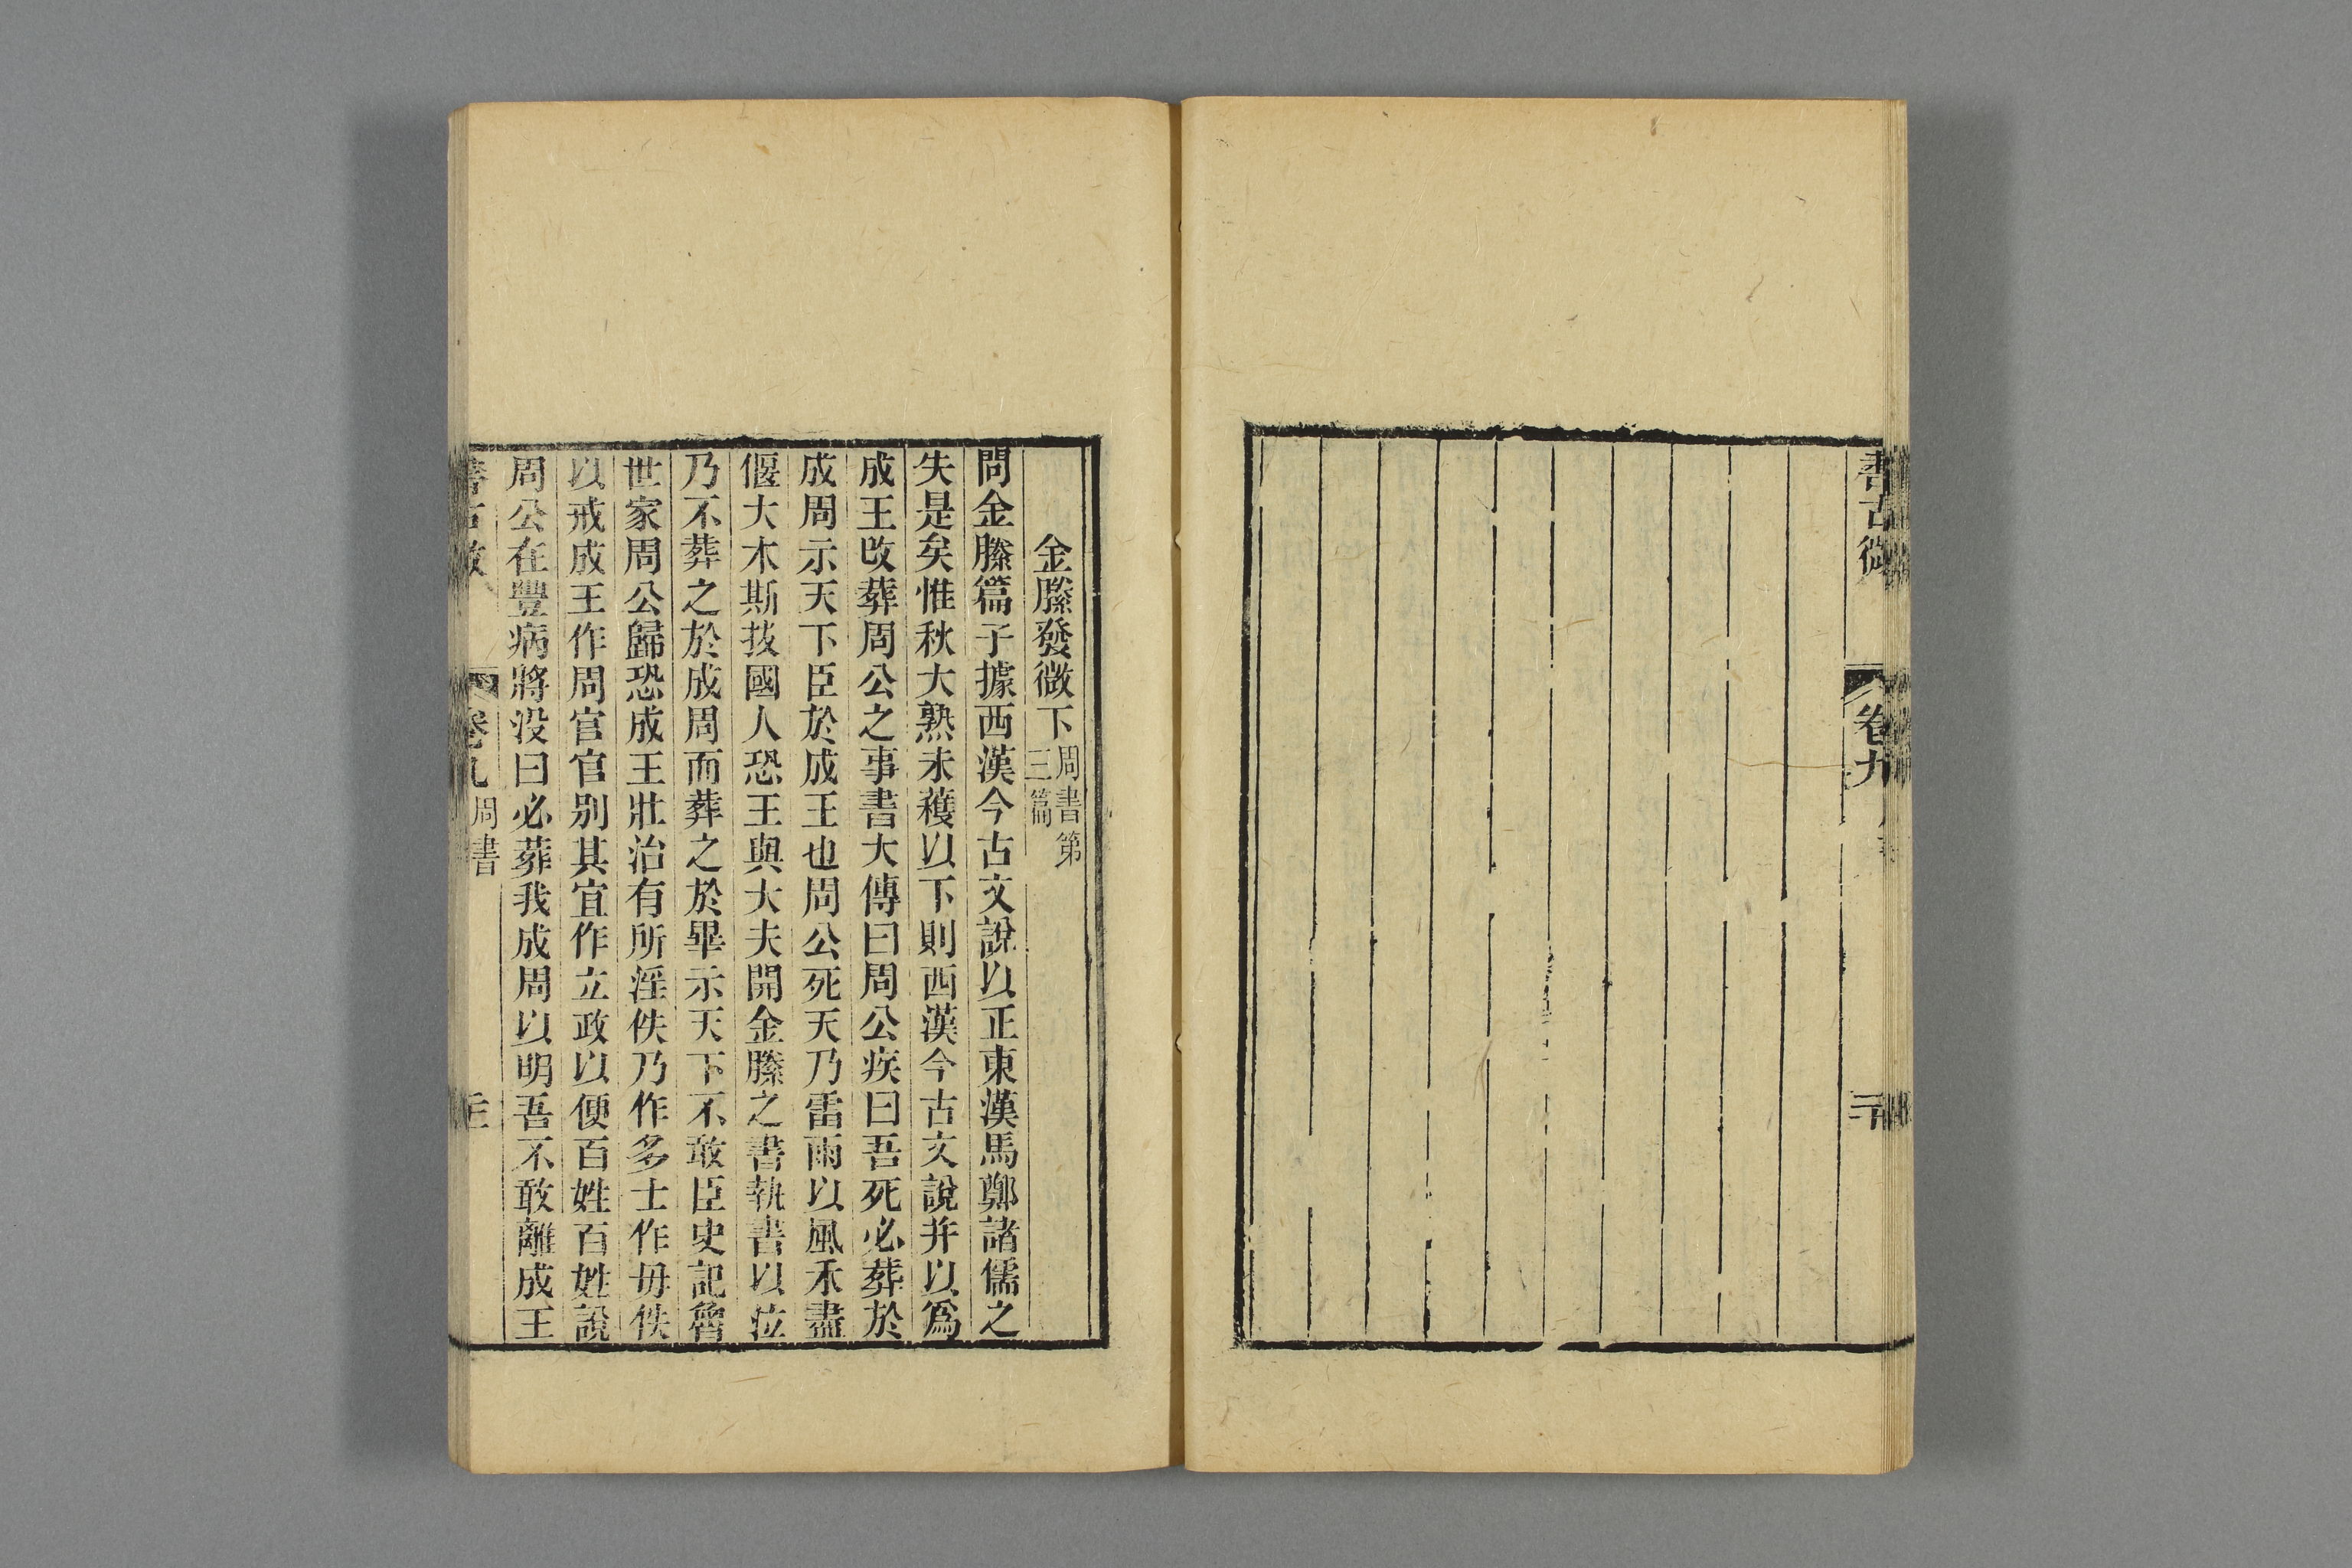 書古微
卷九
二十
金縢發微下 周書第三篇
問金縢篇子據西漢今古文說以正東漢馬鄭諸儒之
失是矣惟秋大熟未穫以下則西漢今古文說并以爲
成王改葬周公之事書大傳曰周公疾曰吾死必葬於
成周示天下臣於成王也周公死天乃雷雨以風禾盡
偃大木斯拔國人恐王與大夫開金縢之書執書以泣
乃不葬之於成周而葬之於畢示天下不敢臣史記魯
世家周公歸恐成王壯治有所淫佚乃作多士作毋佚
以戒成王作周官官别其宜作立政以便百姓百姓說
周公在豐病將没曰必葬我成周以明吾不敢離成王
書古微
卷九 周書